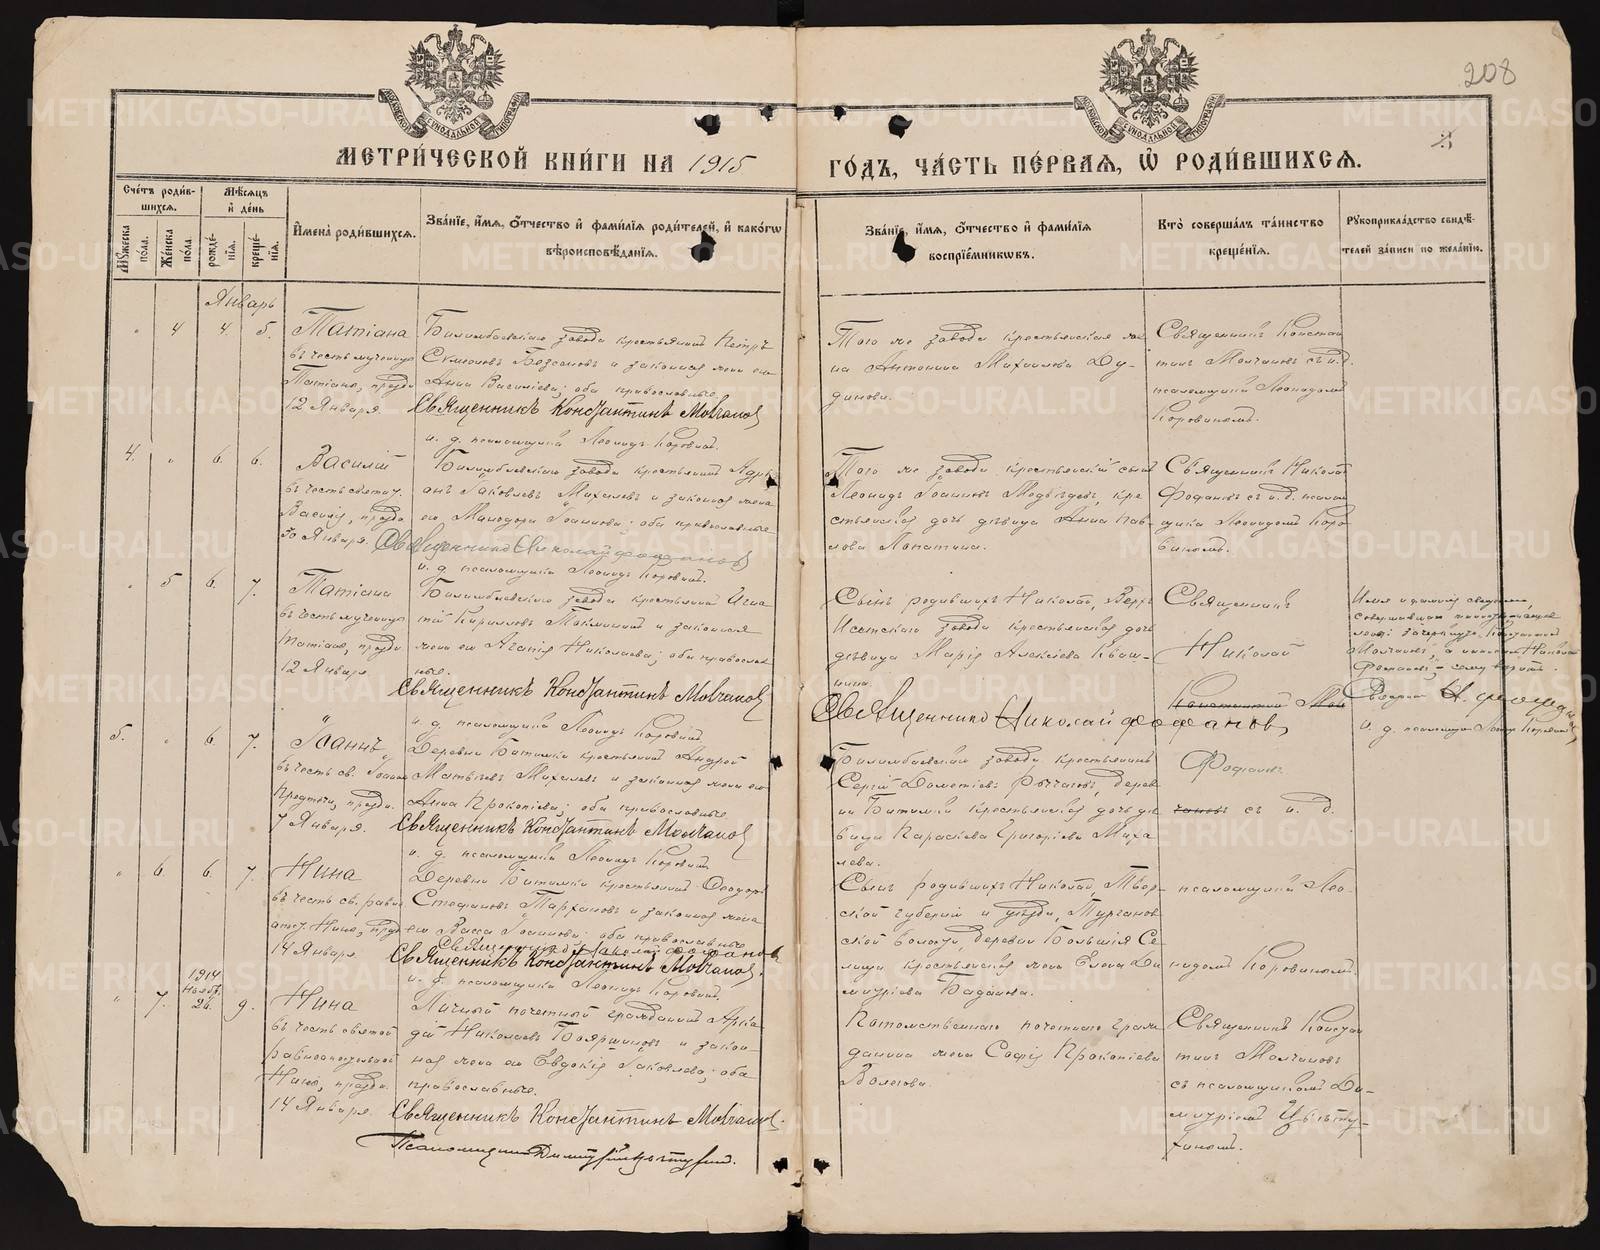 208
МОСКОВСКОЙ СѴНОДАЛЬНОЙ ТИПОГРАФІИ
МОСКОВСКОЙ СѴНОДАЛЬНОЙ ТИПОГРАФІИ
МЕТРИ́ЧЕСКОЙ КНИ́ГИ НА 1915
ГО́ДЪ, ЧА́СТЬ ПЕ́РВАЯ, Ѡ҆ РОДИ́ВШИХСЯ.
Сче́тъ роди́в-
шихся.
Мѣ́сяцъ
и҆ де́нь
Мꙋ́жеска по́ла.
Же́нска по́ла.
рожде́-
нїѧ.
креще́-
нїѧ.
И҆мена̀ роди́вшихся.
Зва́нїе, и҆́мѧ, ѻ҆́тчество и҆ фами́лїѧ роди́телей, и҆ како́гѡ
вѣроисповѣ́данїѧ.
Зва́нїе, и҆́мѧ, ѻ҆́тчество и҆ фами́лїѧ
воспрїе́мникѡвъ.
Кто̀ соверша́лъ та́инство
креще́нїѧ.
Рꙋкоприкла́дство свидѣ́-
телей за́писи по жела́нїю.
Январь
4 4. 5.
Татіана
въ честь мученицы
Татіаны, праздн.
12 Января.
Билимбаевскаго завода крестьянинъ Петръ
Симеоновъ и законная жена его
Анна Василіева; оба православные.
Священникъ Константинъ Молчановъ
и. д. псаломщика Леонидъ Коровинъ.
Того же завода крестьянская же-
на Антонина Михаилова Ду-
динова.
Священникъ Констан
тинъ Молчановъ съ и. д.
псаломщика Леонидомъ
Коровинымъ.
4. 6. 6.
Василій
въ честь святаго
Василія, праздн.
30 Января.
Билимбаевскаго завода крестьянинъ Адрі
анъ Іаковлевъ Михалевъ и законная жена
его Минодора Іоаннова; оба православные
Священникъ Николай Фофановъ
и. д. псаломщика Леонидъ Коровинъ.
Того же завода крестьянскій сынъ
Леонидъ Іоанновъ Медвѣдевъ, кре
стьянская дочь дѣвица Анна Пав-
лова Лопатина.
Священникъ Николай
Фофановъ съ и. д. псалом
щика Леонидомъ Коро
винымъ.
5 6. 7.
Татіана
въ честь мученицы
Татіаны, праздн.
12 Января
Билимбаевскаго завода крестьянинъ Игна
тій Кирилловъ и законная
жена его Агапія Николаева; оба православ
ные.
Священникъ Константинъ Молчановъ
и. д. псаломщика Леонидъ Коровинъ
Сынъ родившихъ Николай, Верхъ
Исетскаго завода крестьянская дочь
дѣвица Марія Алексіева Кваш-
нина.
Священникъ Николай Фофановъ
Священникъ
Николай
Константинъ Мол
Имя и фамилія священника
совершившаго таинство
зачеркнуто, Константинъ
Молчановъ, а написано Николай
Фофановъ, сему вѣрить.
5. 6. 7.
Іоаннъ
въ честь св. Іоанна
Предтечи, праздн.
7 Января.
Деревни Битимки крестьянинъ Андрей
Матѳіевъ Михалевъ и законная жена его
Анна Прокопіева; оба православные
Священникъ Константинъ Молчановъ
и. д. псаломщика Леонидъ Коровинъ
Билимбаевскаго завода крестьянинъ
Сергій Дометіевъ дерев
ни Битимки крестьянская дочь дѣ
вица Параскева Григоріева Миха
лева.
Фофановъ
чановъ съ и. д.
6. 6. 7.
Нина
въ честь св. равно
апост. Нины, праздн
14 Января
Деревни Битимки крестьянинъ Ѳеодоръ
Стефановъ Тархановъ и законная жена
его Васса Іоаннова; оба православные
Священникъ Николай Фофановъ
Священникъ Константинъ Молчановъ.
и. д. псаломщика Леонидъ Коровинъ.
Сынъ родившихъ Николай, Твер-
ской губерніи и уѣзда,
ской волости, деревни Большія Се-
лища крестьянская жена Елена Ди
митріева
псаломщика Лео-
нидомъ Коровинымъ.
7. 1914 Нояб. 24. 9.
Нина
въ честь святой
равноапостольной
Нины, праздн.
14 Января.
Личный почетный гражданинъ Арка
дій Николаевъ Бояршиновъ и закон-
ная жена его Евдокія Іаковлева; оба
православные.
Священникъ Константинъ Молчановъ.
Псаломщикъ Димитрій Цвѣтухинъ.
Потомственнаго почетнаго граж
данина жена Софія Прокопіева
Священникъ Констан
тинъ Молчановъ
съ псаломщикомъ Ди-
митріемъ Цвѣту-
хинымъ.
METRIKI.GASO-URAL.RU